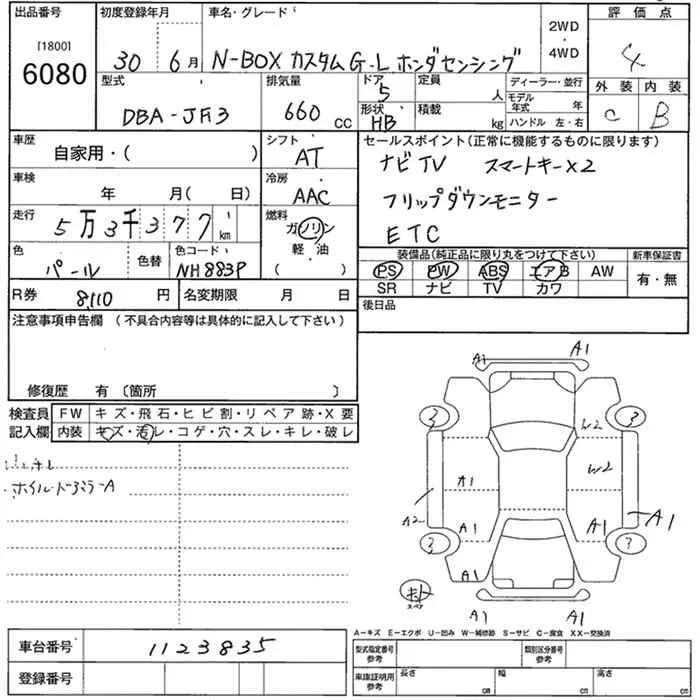 出品番号 初度登録年月 車名・グレード 2WD・4WD 評価点
[1800] 6080 30 6月 N-BOX カスタム G-L ホンダセンシング 4
型式 排気量 ドア 定員 ディーラー・並行 外装 内装
DBA-JF3 660CC 5 人 モデル年式 年 C B
形状 積載 ハンドル 左・右
HB kg
車歴 シフト セールスポイント(正常に機能するものに限ります)
自家用・( ) AT ナビTV スマートキー×2
車検 冷房
年 月( 日) AAC フリップダウンモニター
走行 燃料
5万3千377km ガソリン ETC
色 色替 色コード 軽・油 装備品(純正品に限り丸をつけて下さい) 新車保証書
パール NH883P ( ) PS PW ABS エアB AW 有・無
R券 8110円 名変期限 月 日 SR ナビ TV カワ
注意事項申告欄 (不具合内容等は具体的に記入して下さい) 後日品
修復歴 有 〔箇所 〕
検査員 FW キズ・飛石・ヒビ割・リペア跡・X要
記入欄 内装 キズ・汚レ・コゲ・穴・スレ・キレ・破レ
A1 A1
3 3
W2
A1 W2
A2 A1 A1 A1
3 ?
A1
キト
スペア
A1 A1
A-キズ E-エクボ U-凹み W-補修跡 S-サビ C-腐食 XX-交換済
車台番号 1123835 型式指定番号 参考 類別区分番号 参考
登録番号 車庫証明用 参考 長さ cm 幅 cm 高さ cm